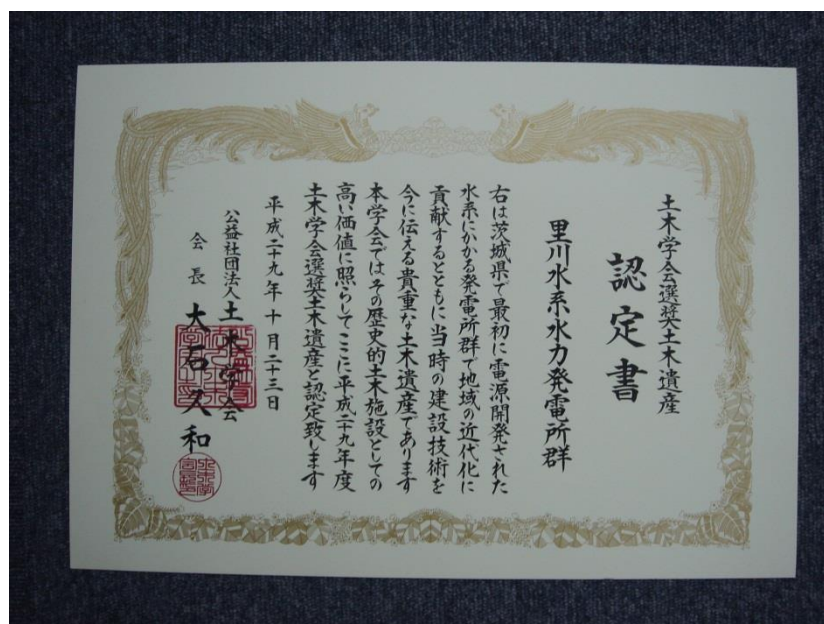 土木学会選奨土木遺産
認定書
里川水系水力発電所群
右は茨城県で最初に電源開発された
水系にかかる発電所群で地域の近代化に
貢献するとともに当時の建設技術を
今に伝える貴重な土木遺産であります
本学会ではその歴史的土木施設としての
高い価値に照らしてここに平成二十九年度
土木学会選奨土木遺産と認定致します
平成二十九年十月二十三日
公益社団法人土木学会
会長 大石久和